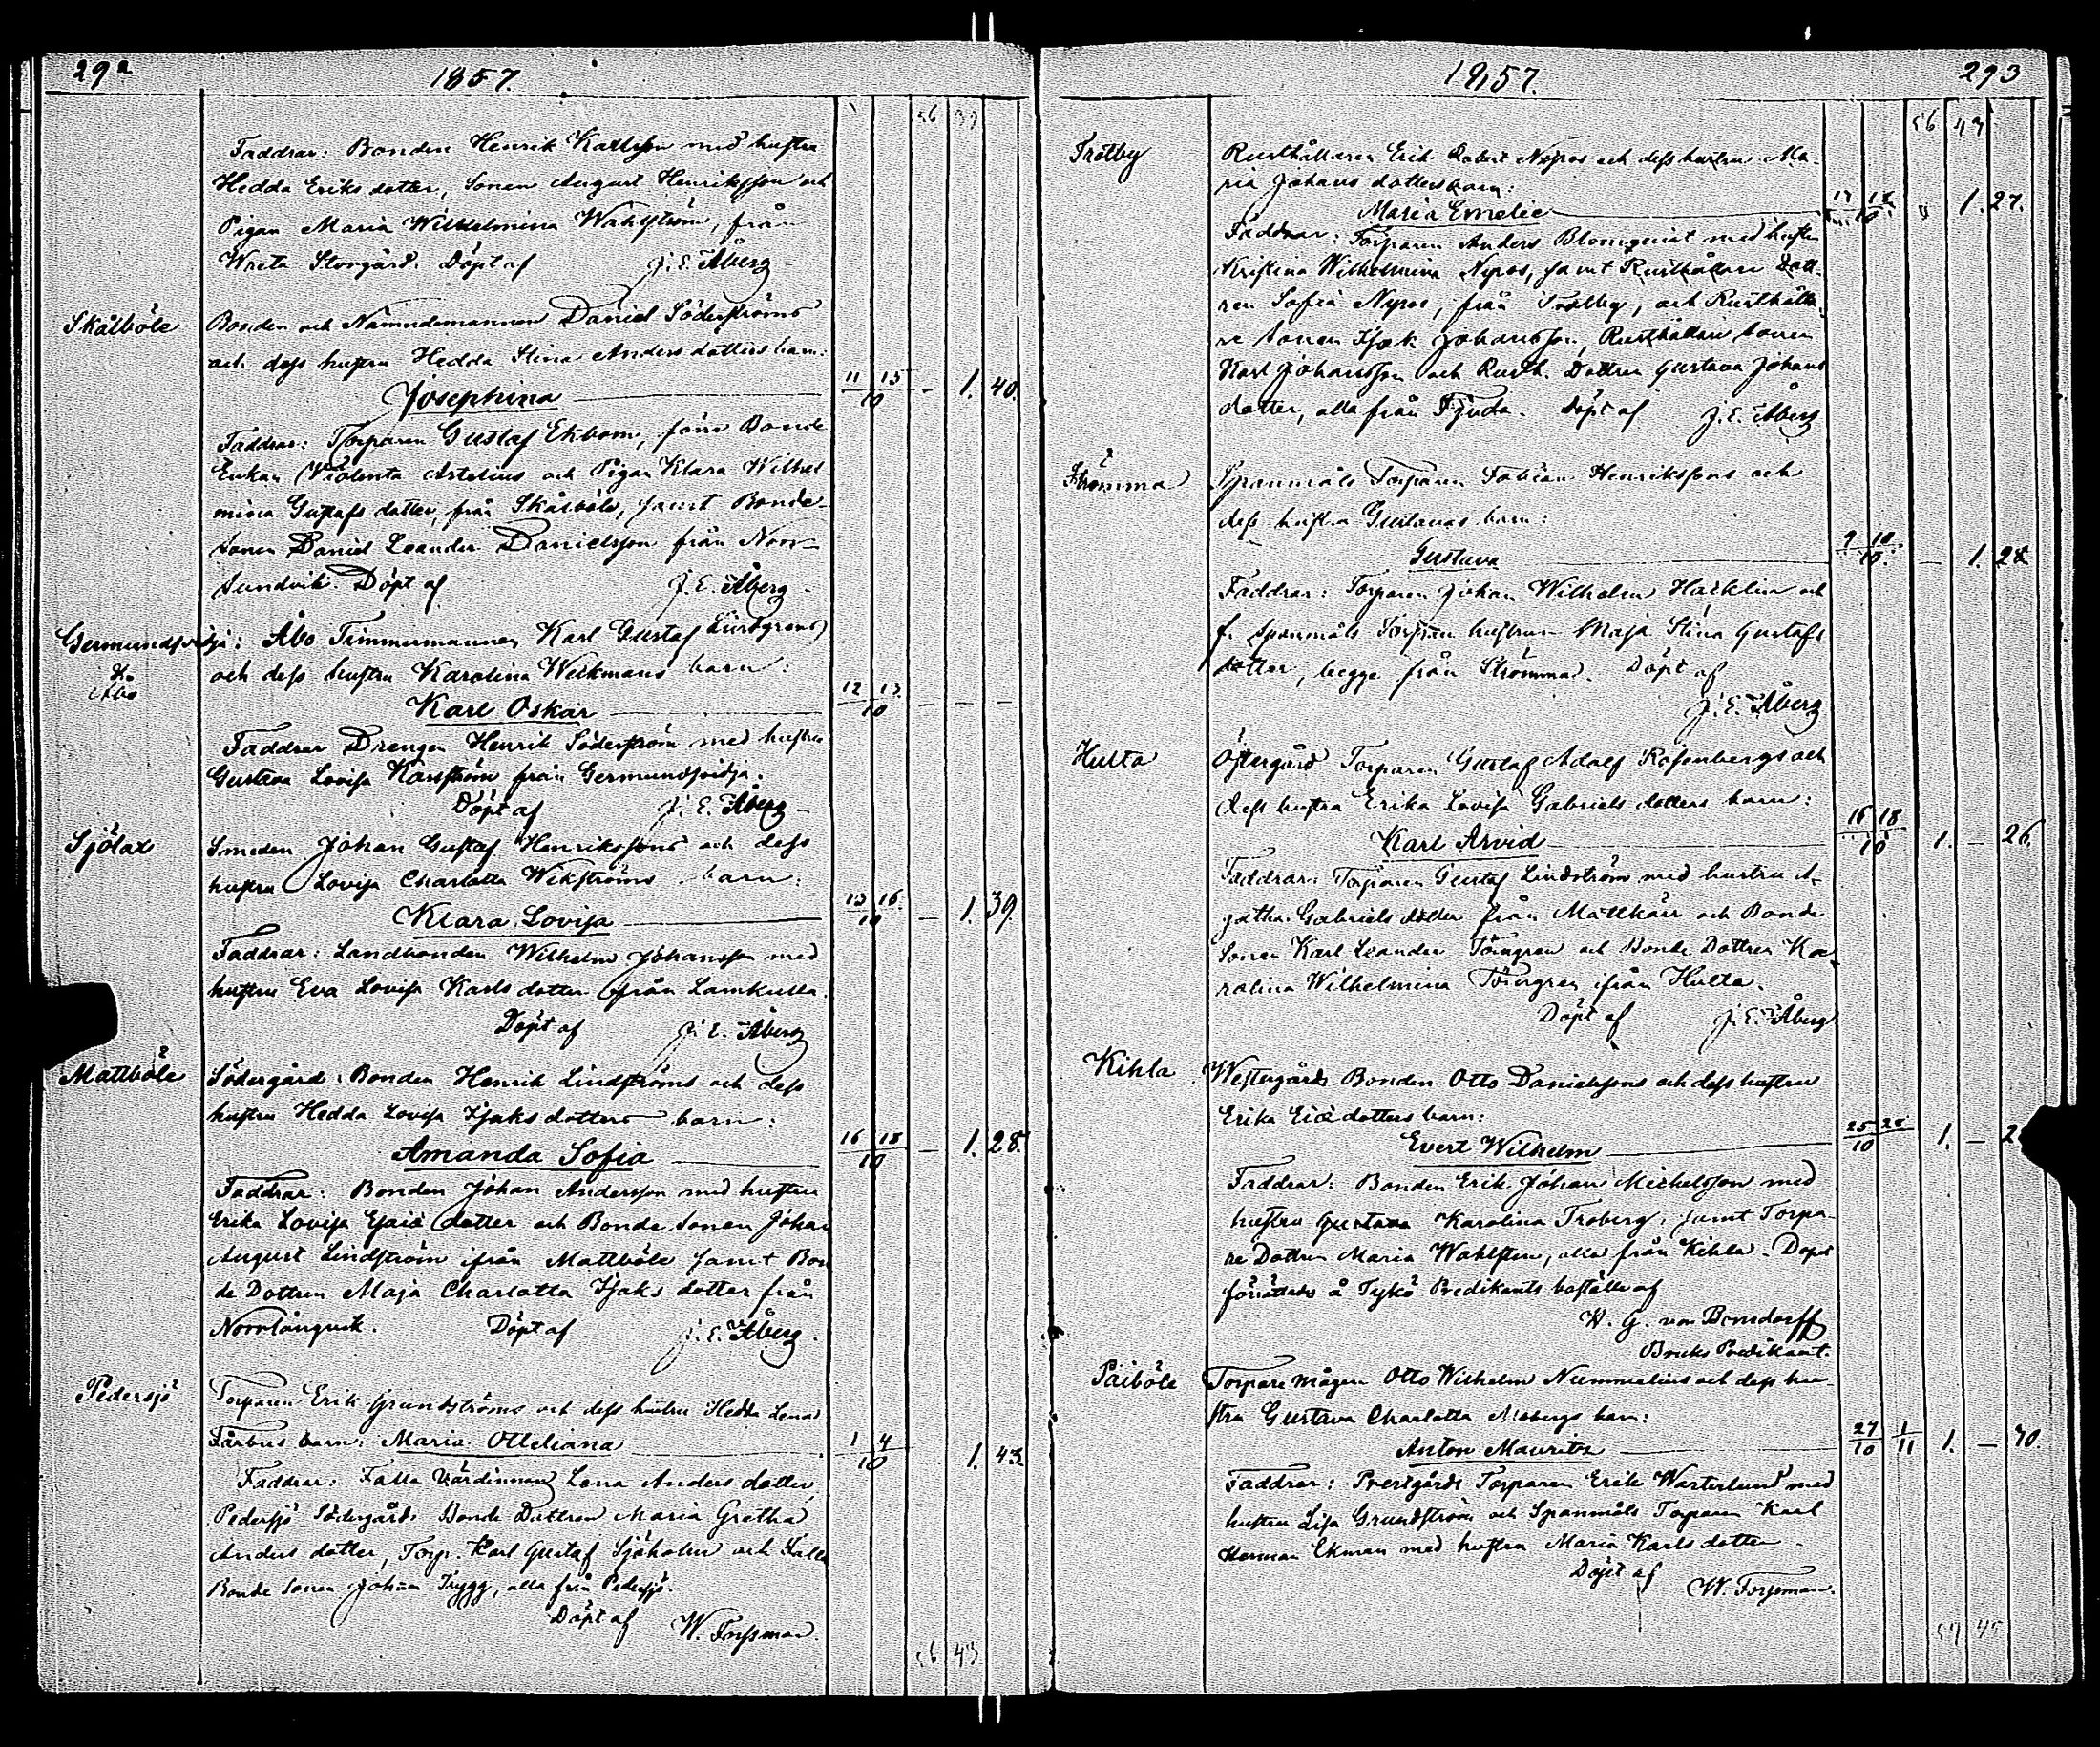 292
1857.
56 39
Faddrar: Bonden Henrik Karlsson med hustru
Hedda Eriks dotter, Sonen August Henriksson och
Pigan Maria Wilhelmina Wahlström, från
Wreta Storgård. Döpt af J. E. Åberg
Skålböle Bonden och Nämndemannen Daniel Söderströms
och dess hustru Hedda Stina Anders dotters barn:
Josephina 11 15/10 - 1. 40.
Faddrar: Torparen Gustaf Ekbom, förra Bonde
Enkan Violenta Artelius och Pigan Klara Wilhel-
mina Gustafs dotter, från Skålböle, samt Bonde-
sonen Daniel Leander Danielsson från Norr-
sundvik. Döpt af J. E. Åberg
Germundsvidja: Åbo Timmermannen Karl Gustaf Lindgrens
& Åbo
och dess hustru Karolina Weckmans barn:
Karl Oskar 12 13/10 - - -
Faddrar Drengen Henrik Söderström med hustru
Gustava Lovisa Karström från Germundsvidja.
Döpt af J. E. Åberg
Sjölax Smeden Johan Gustaf Henrikssons och dess
hustru Lovisa Charlotta Wikströms barn:
Klara Lovisa 13 16/10 - 1. 39.
Faddrar: Landbonden Wilhelm Johansson med
hustru Eva Lovisa Karls dotter från Lamkulla.
Döpt af J. E. Åberg
Mattböle Södergård Bonden Henrik Lindströms och dess
hustru Hedda Lovisa Isaks dotters barn:
Amanda Sofia 16 18/10 - 1. 28.
Faddrar: Bonden Johan Andersson med hustru
Erika Lovisa Esaiæ dotter och Bonde sonen Johan
August Lindström ifrån Mattböle samt Bon
de Dottren Maja Charlotta Isaks dotter från
Norrlångvik. Döpt af J. E. Åberg.
Pedersjö Torparen Erik Grundströms och dess hustru Hedda Lenas
Fårbus barn: Maria Otteliana 1 4/10 1. 43.
Faddrar: Falla Värdinnan Lena Anders dotter,
Pedersjö Södergårds Bonde Dottren Maria Gretha
Anders dotter, Torp. Karl Gustaf Sjöholm och Falla
Bonde Sonen Johan Trygg, alla från Pedersjö.
Döpt af W. Forssman.
56 43
1857.
293
56 43
Trotby Rusthållaren Erik Robert Nyros och dess hustru Ma-
ria Johans dotters barn:
Maria Emelie 17 18/10 " 1. 27.
Faddrar: Torparen Anders Blomqvist med hustru
Kristina Wilhelmina Nyros, samt Rusthållare Dott-
ren Sofia Nyros, från Trotby, och Rusthålla-
re sonen Isak Johansson, Rusthållare sonen
Karl Johansson och Rusth. Dottren Gustava Johans
dotter, alla från Tjuda. Döpt af J. E. Åberg
Strömma Spanmåls Torparen Fabian Henrikssons och
dess hustru Gustavas barn:
Gustava 9 10/10. - 1. 28.
Faddrar: Torparen Johan Wilhelm Hacklin och
f. Spanmåls Torpare hustrun Maja Stina Gustafs
dotter, begge från Strömma. Döpt af
J. E. Åberg
Hulta Östergård Torparen Gustaf Adolf Rosenbergs och
dess hustru Erika Lovisa Gabriels dotters barn:
Karl Arvid 16 18/10 1. - 26.
Faddrar: Torparen Gustaf Lindström med hustru A-
gatha Gabriels dotter från Mattkärr och Bonde
Sonen Karl Leander Törngren och Bonde Dottren Ka-
rolina Wilhelmina Törngren ifrån Hulta.
Döpt af J. E. Åberg
Kihla Westergårds Bonden Otto Danielssons och dess hustru
Erika dotters barn:
Evert Wilhelm 25 28/10 1. - 2
Faddrar: Bonden Erik Johan Michelsson med
hustru Gustava Karolina Troberg, samt Torpa-
re Dottren Maria Wahlsten, alla från Kihla. Dopet
förrättades å Tykö Predikants boställe af
W. G. von Bonsdorff
Bruks Predikant.
Påiböle Torpare Mågen Otto Wilhelm Nummelins och dess hu-
stru Gustava Charlotta Mobergs barn:
Anton Mauritz 27/10 1/11 1. - 70.
Faddrar: Prestgårds Torparen Erik Westerlund med
hustru Lisa Grundström och Spanmåls Torparen Karl
Herman Ekman med hustru Maria Karls dotter.
Döpt af W. Forssman.
57 45